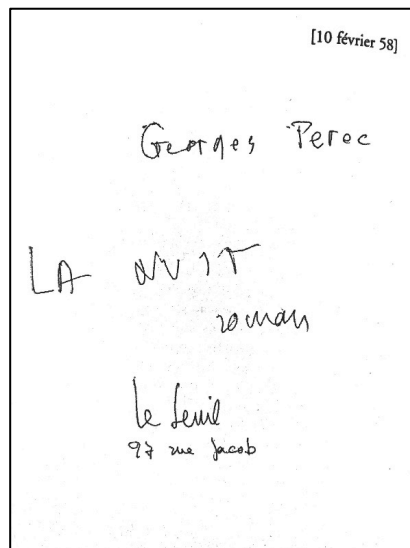 [10 février 58]
Georges Perec
LA NUIT
roman
le Seuil
97 rue Jacob